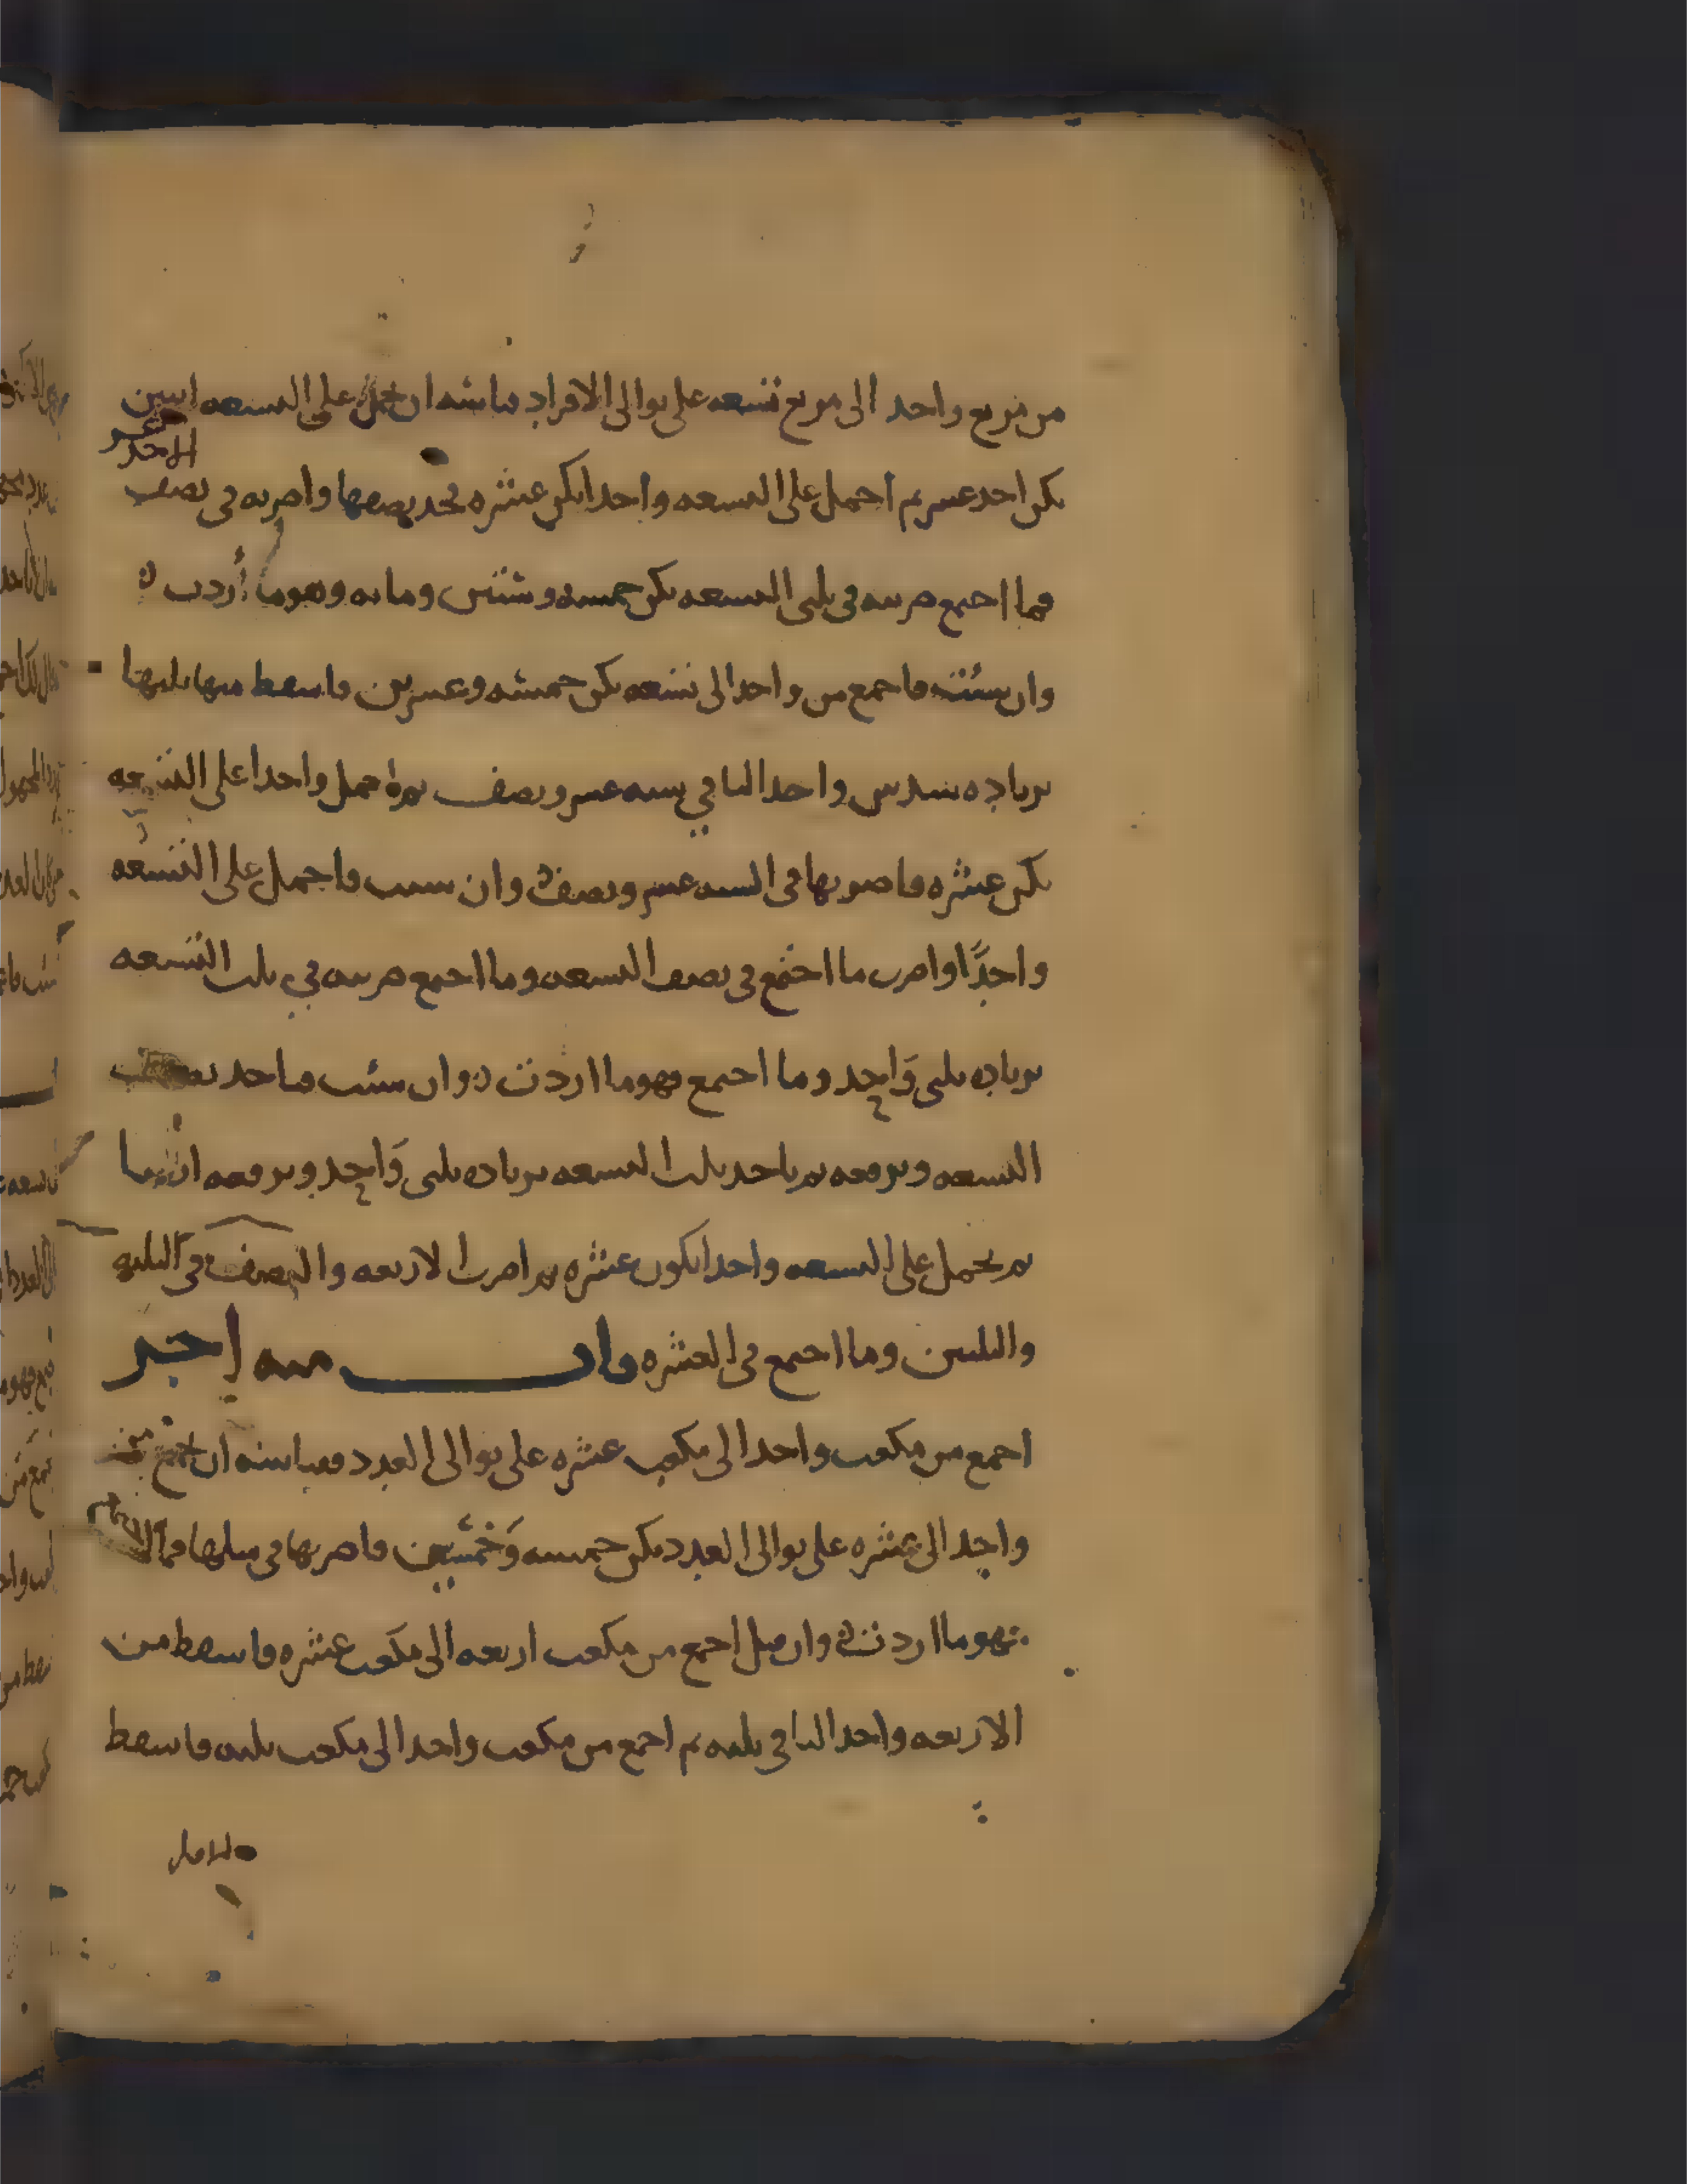 من مربع واحد الى مربع تسعه على توالى الافراد قياسه ان تحمل على التسعه اثنين
يكن احد عشر ثم احمل على التسعه واحدا يكن عشره فخد نصفها واضربه في نصف
الاحد عشر
فما اجتمع ضربته في ثلثى التسعه يكن خمسه وستين ومايه وهو ما أردت
وان شئت فاجمع من واحد الى تسعه يكن خمسه وعشرين فاسقط منها ثلثها
بزياده سدس واحد الباقي سته عشر ونصف ثم احمل واحدا على التسعه
يكن عشره فاضربها في السته عشر ونصف وان شيت فاحمل على التسعه
واحدًا واضرب ما اجتمع في نصف التسعه وما اجتمع ضربته في ثلث التسعه
بزياده ثلثى وَاحد وما اجتمع فهو ما اردت وان شئت فتاخد نصف
التسعه وترفعه ثم تاخد ثلث التسعه بزياده ثلثى وَاحد وترفعه ايضا
ثم تحمل على التسعه واحدا يكون عشره ثم اضرب الاربعه والنصف في الثلثه
والثلثين وما اجتمع في العشره وان منه اخر
اجمع من مكعب واحد الى مكعب عشره على توالى العدد فقياسه ان تجمع من
واحد الى عشره على توالى العدد يكن خمسه وَخمسين فاضربها في مثلها فما
فهو ما اردت وان قيل اجمع من مكعب اربعه الى مكعب عشره فاسقط من
الاربعه واحد الباقي ثلثه ثم اجمع من مكعب واحد الى مكعب ثلثه فاسقط